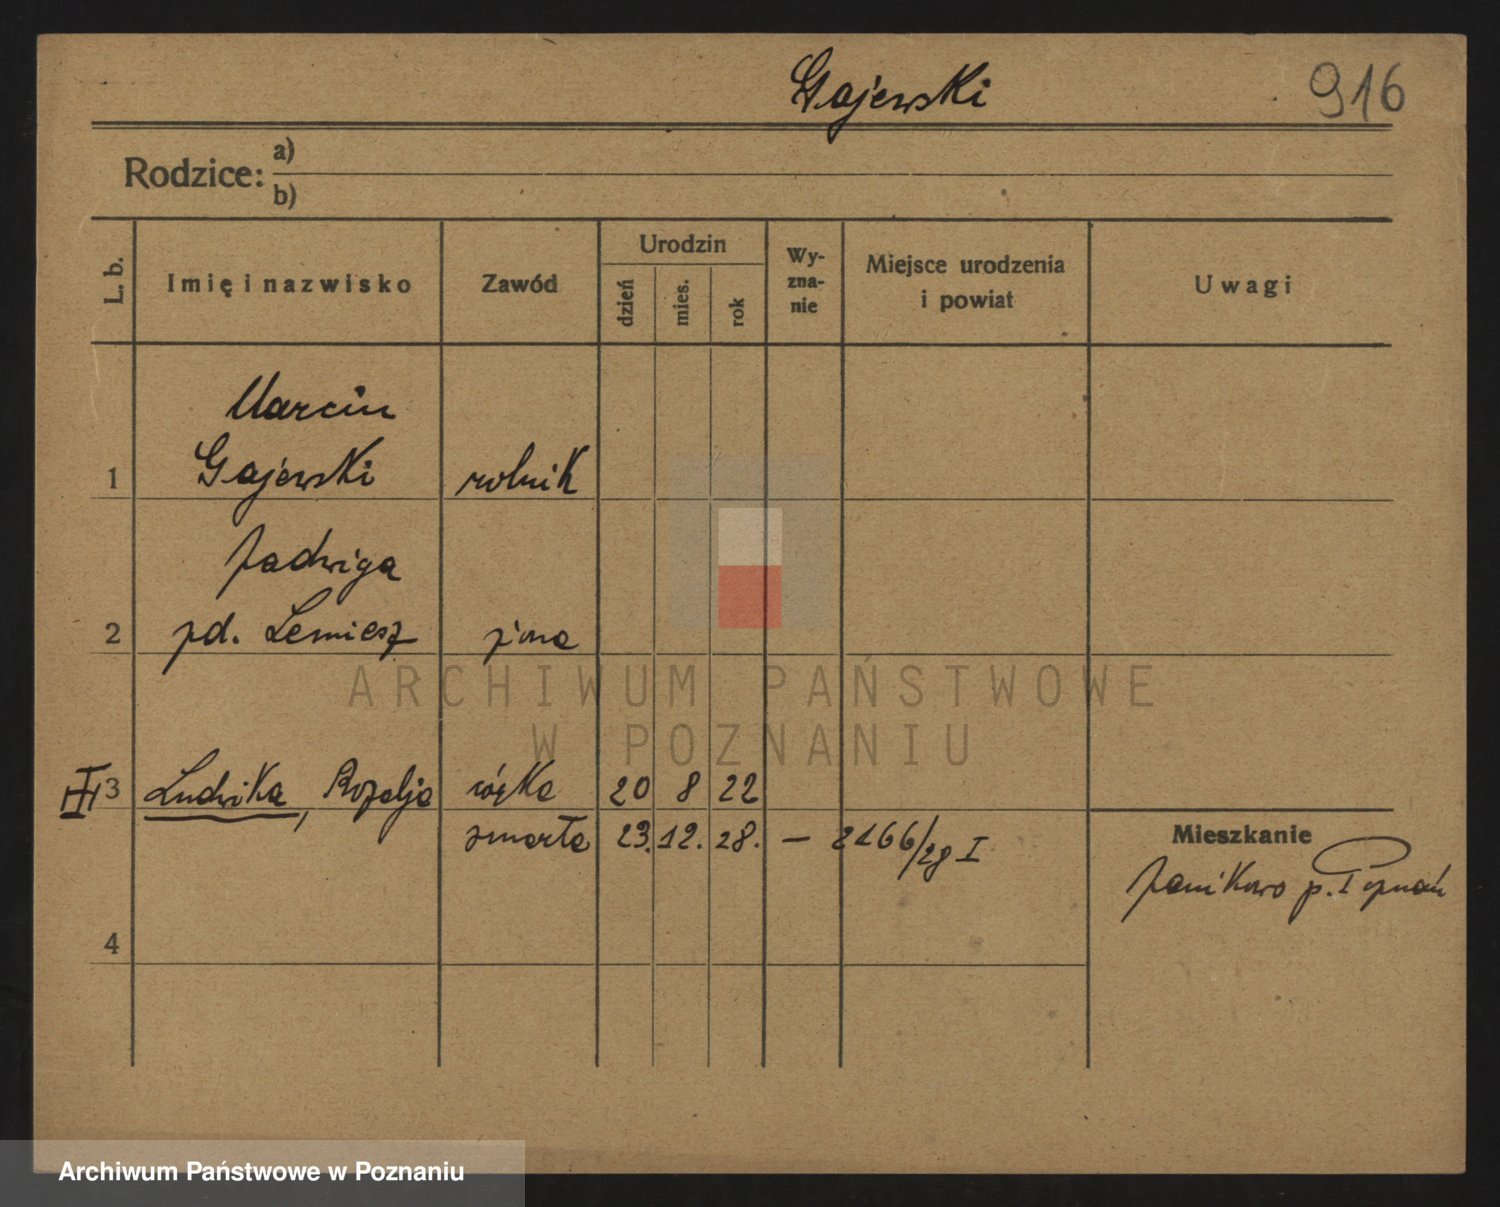 Gajewski 916
Rodzice: a)
b)
L. b. Imię i nazwisko Zawód Urodzin dzień mies. rok Wy-zna-nie Miejsce urodzenia i powiat Uwagi
Marcin
1 Gajewski rolnik
Jadwiga
2 pd. Lemiesz żona
ARCHIWUM PAŃSTWOWE
W POZNANIU
III 3 Ludwika, Rozalja córka 20 8 22
zmarła 23. 12. 28. — 2166/28 I
Mieszkanie
Janikowo p. Poznań
4
Archiwum Państwowe w Poznaniu